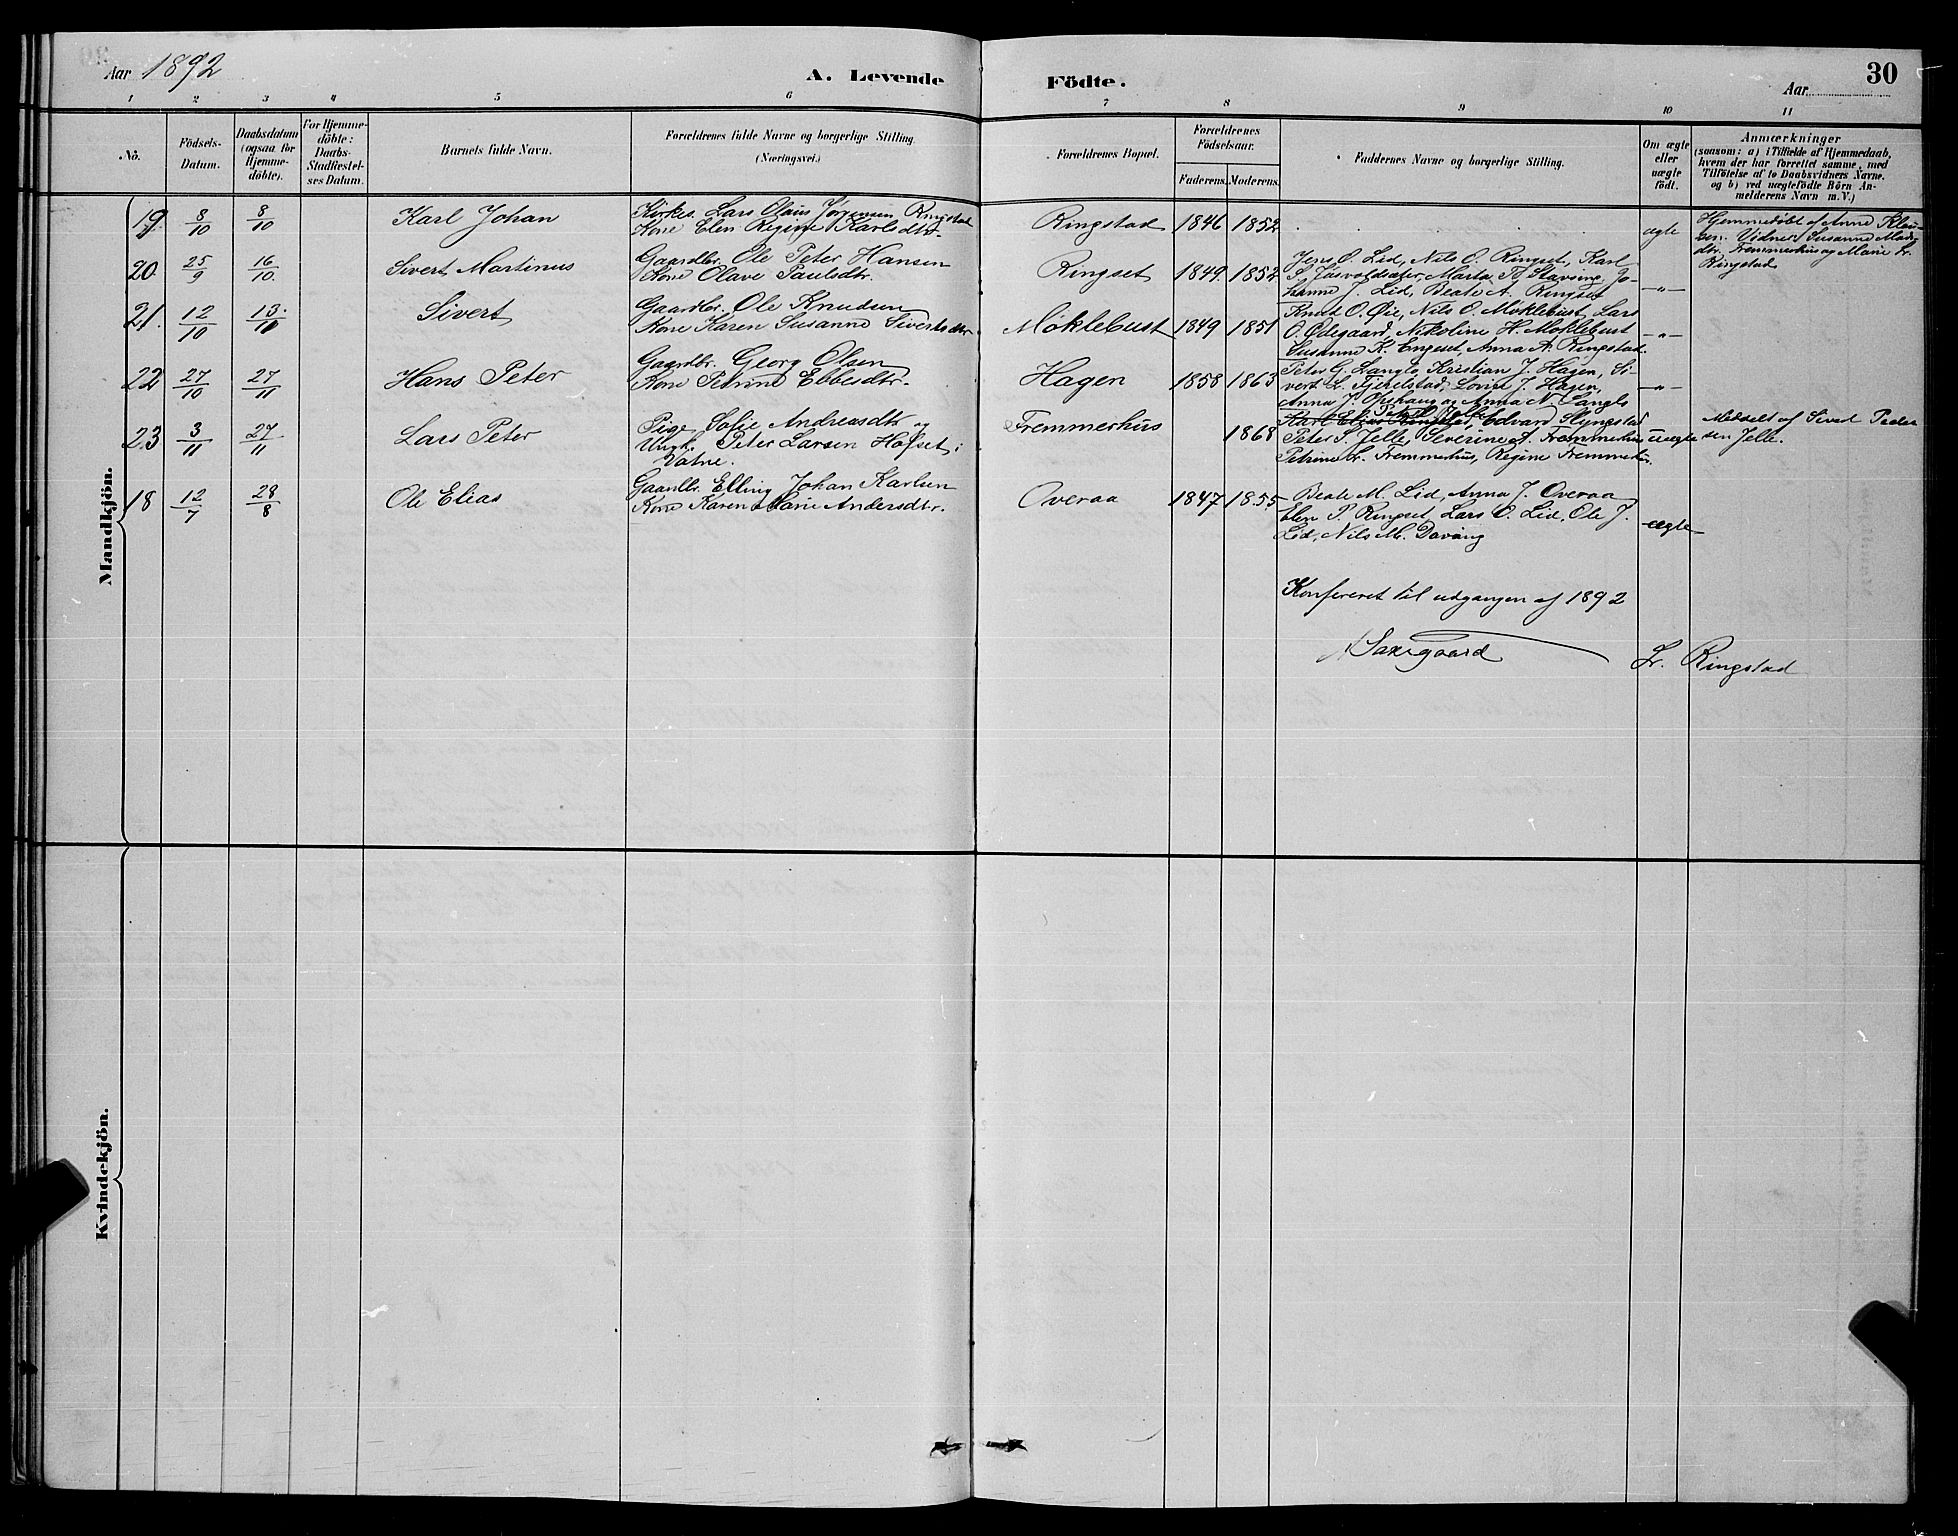 Aar 1892
A. Levende Födte.
Aar
30
1 2 3 4 5 6 7 8 9 10 11
No.
Födsels-Datum.
Daabsdatum (ogsaa for Hjemme-döbte).
For Hjemme-döbte: Daabs-Stadfæstel-ses Datum.
Barnets fulde Navn.
Forældrenes fulde Navne og borgerlige Stilling.
(Næringsvei.)
Forældrenes Bopæl.
Forældrenes Födselsaar.
Faderens. Moderens.
Faddernes Navne og borgerlige Stilling.
Om ægte eller uægte födt.
Anmærkninger
(saasom: a) i Tilfælde af Hjemmedaab,
hvem der har forrettet samme, med
Tilföielse af to Daabsvidners Navne.
og b) ved uægtefödte Börn An-
melderens Navn m.V.)
Mandkjön.
19. 8/10 8/10 Karl Johan
Kirkes. Lars Olaus Jørgensen Ringstad
Kone Elen Regine Karlsdtr.
Ringstad 1846 1852 ægte
Hjemmedøbt af Anne
Vidner Susanne
dtr. Fremmerhus og Marie Lr.
Ringstad
20. 25/9 16/10. Sivert Martinus
Gaardbr. Ole Peter Hansen
Kone Olave Paulsdtr.
Ringset 1849 1852
Jens O. Lid, Nils O. Ringset, Karl
Marta Staving, Jo-
hanne J. Lid, Beate A. Ringset
-"-
21. 12/10 13./11 Sivert
Gaardbr. Ole Knudsen
Kone Karen Susanne Sivertsdtr.
Møklebust 1849 1851
Knut O. Øie, Nils O. Møklebust, Lars
O. Ødegaard, Nikoline H. Møklebust
Susanne K. Engeset, Anna A. Ringstad.
-"-
22 27/10 27/11 Hans Peter
Gaardbr. Georg Olsen
Kone Petrine Ebbesdtr.
Hagen 1858 1863
Peter G. Langlo, Kristian J. Hagen, Si-
vert L. Fjekelstad, Lovise J. Hagen,
Anna J. Opshaug og Anna N. Langlo
-"-
23 3/11 27/11 Lars Peter
Pige Sofie Andreasdtr og
Ungk. Peter Larsen Hofset i
Vatne.
Fremmerhus 1868
Karl Elias Jelle, Edvard Slyngstad
Peter S. Jelle, Severine A. Fremmerhus
Petrine L. Fremmerhus, Regine Fremmerhus.
uægte
Meddelt af Sivert Peder
sen Jelle.
18 12/7 28/8 Ole Elias
Gaardbr. Elling Johan Karlsen
Kone Karen Marie Andersdtr.
Overaa 1847 1855
Beate M. Lid, Anna J. Overaa
Elen P. Ringset, Lars O. Lid, Ole J.
Lid, Nils M. Davang
ægte
Konfereret til udgangen af 1892
Saxegaard
L. Ringstad
Kvindekjön.